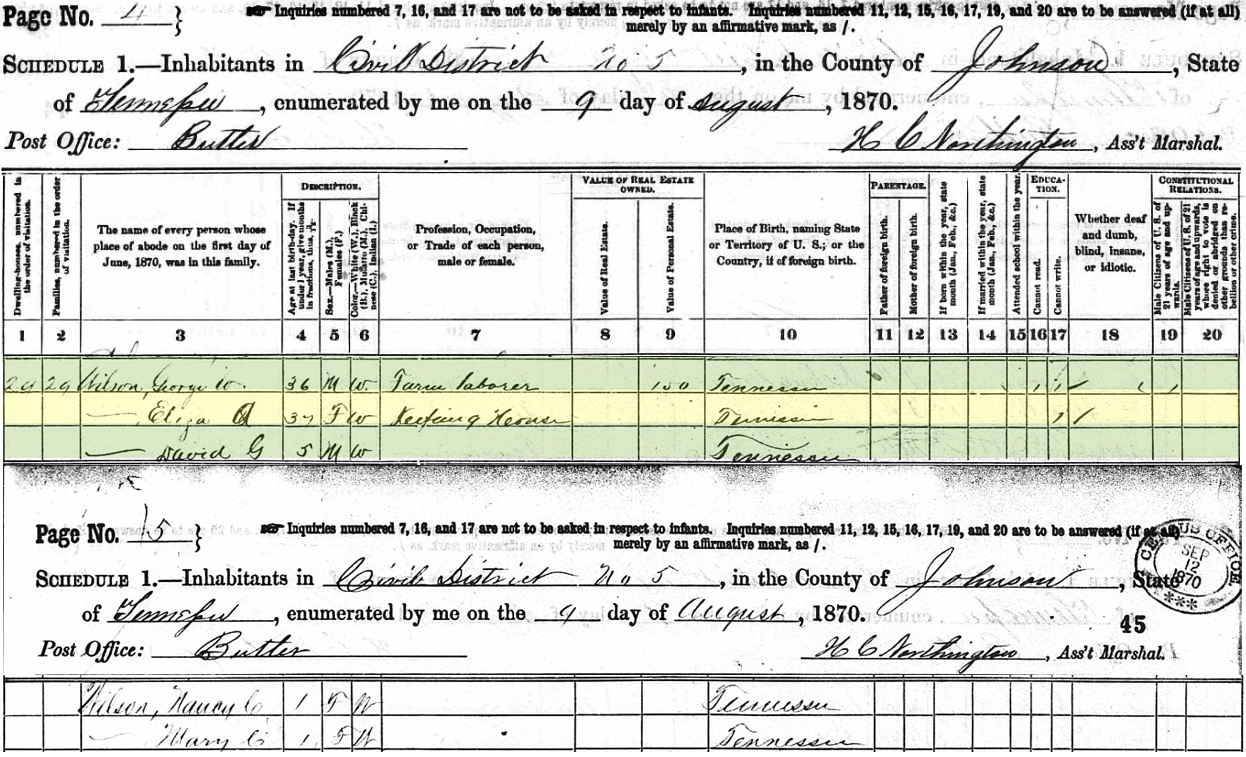 Page No. 4 } Inquiries numbered 7, 16, and 17 are not to be asked in respect to infants. Inquiries numbered 11, 12, 15, 16, 17, 19, and 20 are to be answered (if at all)
merely by an affirmative mark, as /.
SCHEDULE 1.—Inhabitants in Civil District No 5, in the County of Johnson, State
of Tennessee, enumerated by me on the 9 day of August, 1870.
Post Office: Butler H C Northington, Ass't Marshal.
Dwelling-houses, numbered in the order of visitation.
Families, numbered in the order of visitation.
The name of every person whose place of abode on the first day of June, 1870, was in this family.
DESCRIPTION.
Age at last birth-day. If under 1 year, give months in fractions, thus,
Sex.—Males (M.), Females (F.)
Color.—White (W.), Black (B.), Mulatto (M.), Chinese (C.), Indian (I.)
Profession, Occupation, or Trade of each person, male or female.
VALUE OF REAL ESTATE OWNED.
Value of Real Estate.
Value of Personal Estate.
Place of Birth, naming State or Territory of U. S.; or the Country, if of foreign birth.
PARENTAGE.
Father of foreign birth.
Mother of foreign birth.
If born within the year, state month (Jan., Feb., &c.)
If married within the year, state month (Jan., Feb., &c.)
Attended school within the year.
EDUCATION.
Cannot read.
Cannot write.
Whether deaf and dumb, blind, insane, or idiotic.
CONSTITUTIONAL RELATIONS.
Male Citizens of U. S. of 21 years of age and upwards.
Male Citizens of U. S. of 21 years of age and upwards, whose right to vote is denied or abridged on other grounds than rebellion or other crime.
1 2 3 4 5 6 7 8 9 10 11 12 13 14 15 16 17 18 19 20
29 29 Wilson, George W. 36 M W Farm laborer 100 Tennessee 1 1 / 1
— Eliza 37 F W Keeping House Tennessee 1 /
— David G 5 M W Tennessee
Page No. 5 } Inquiries numbered 7, 16, and 17 are not to be asked in respect to infants. Inquiries numbered 11, 12, 15, 16, 17, 19, and 20 are to be answered (if at all)
merely by an affirmative mark, as /.
SCHEDULE 1.—Inhabitants in Civil District No 5, in the County of Johnson, State
of Tennessee, enumerated by me on the 9 day of August, 1870.
CENSUS OFFICE SEP 12 1870
45
Post Office: Butler H C Northington, Ass't Marshal.
Wilson, Nancy C. 1 F W Tennessee
— Mary 1 F W Tennessee